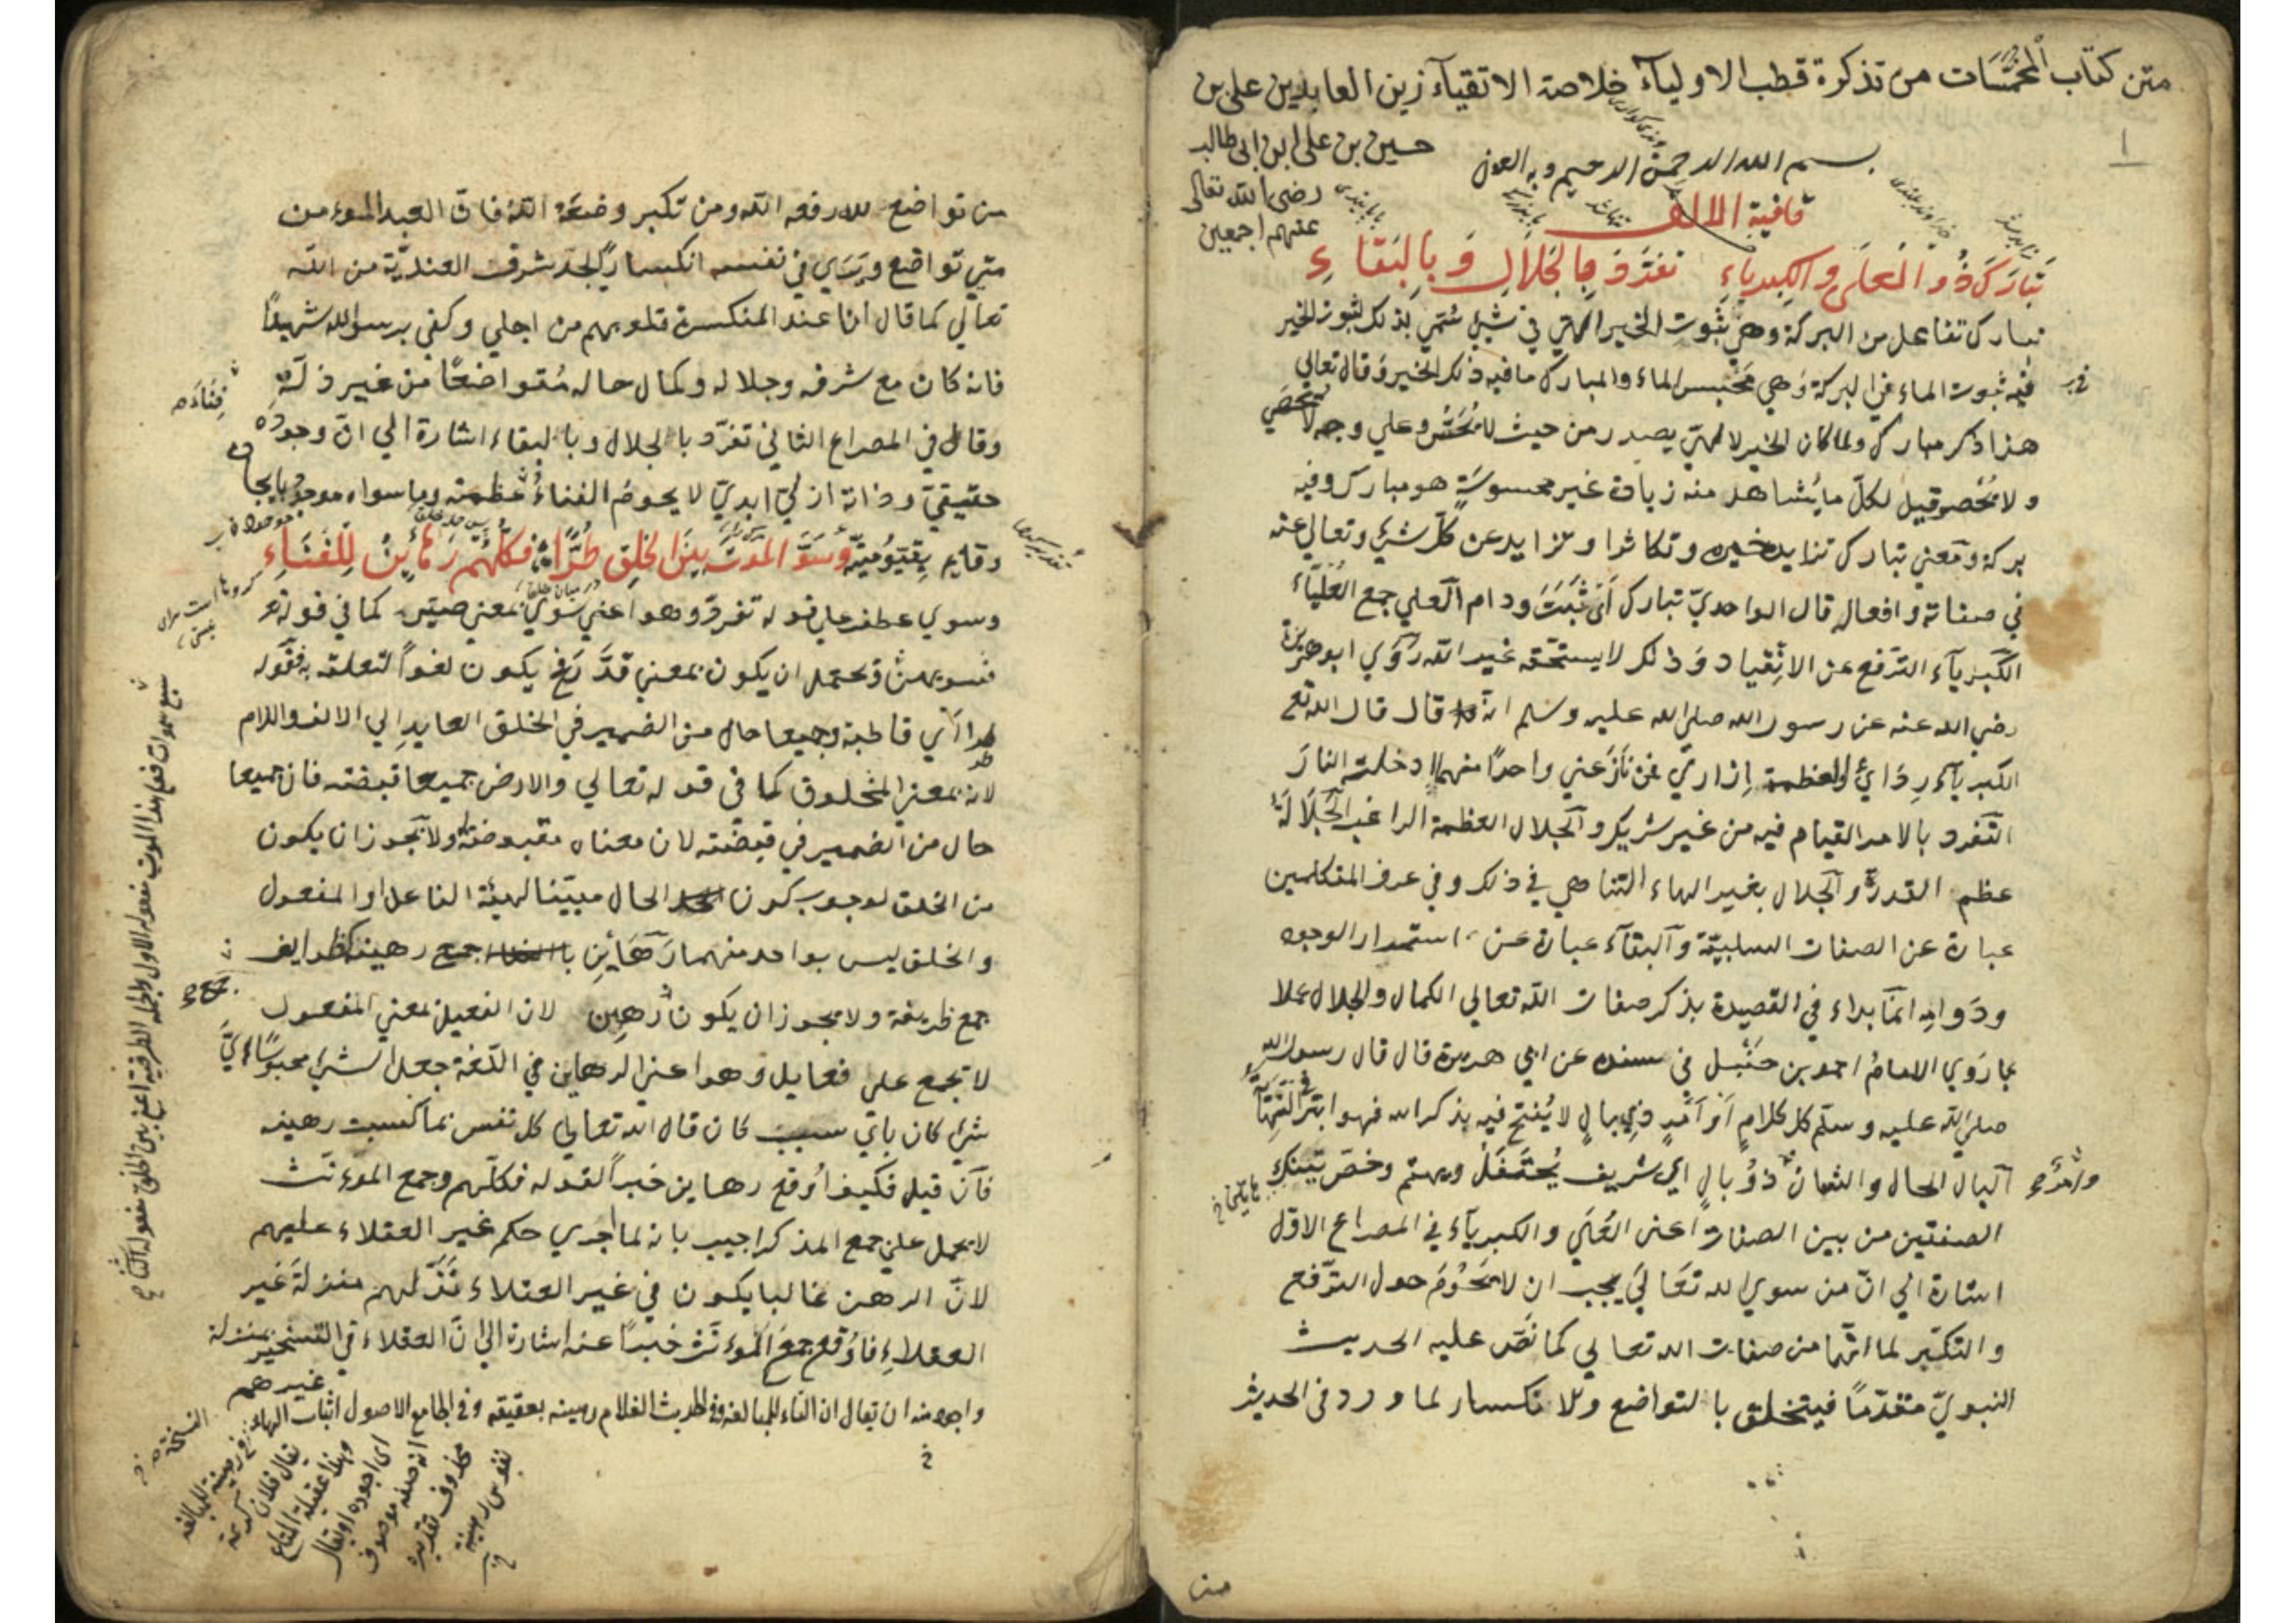 متن كتاب المخمسات من تذكرة قطب الاولياء خلاصة الاتقياء زين العابدين على بن
حسين بن على ابن ابى طالب
رضى الله تعالى
عنهم اجمعين
١
بسم الله الرحمن الرحيم وبه العون
قافية الالف
تَبَارَكَ ذُو الْعُلَى وَالكِبرياءِ تَفَرَّدَ بِالجَلَالِ وَبِالبَقَاءِ
تبارك تفاعل من البركة وهي ثبوت الخير الالهي في شيئ سُمّي بذلك لثبوت الخير
فيه ثبوت الماء في البركة وهي محبس الماء والمبارك ما فيه ذلك الخير وقال تعالى
هذا ذكر مبارك ولما كان الخير الالهي يصدر من حيث لا يُحَسّ وعلي وجه لا يُحصَي
ولا يُحصر قيل لكل ما يُشاهد منه زيادة غير محسوسة هو مبارك وفيه
بركة ومعني تبارك تزايد خيره وتكاثر او تزايد عن كل شيئ وتعالى عنه
في صفاته وافعاله قال الواحديّ تبارك اَيْ ثَبَتَ ودام العلي جمع العُلْيَاء
الكبرياء الترفع عن الانقياد وذلك لا يستحقه غير الله رَوَي ابو هريرة
رضي الله عنه عن رسول الله صلى الله عليه وسلم انه قال قال الله تع
الكبرياء رِدَائي والعظمة اِزاري فمن نَازَعَني واحدًا منهما ادخلته النارَ
التفرد بالامر القيام فيه من غير شريك والجلال العظمة الراغب الجَلَالَة
عظم القدر والجلال بغير الهاء التناهي في ذلك وفي عرف المتكلمين
عبارة عن الصفات السلبيّة والبقاء عبارة عن استمرار الوجود
ودَوامه انما بداء في القصيدة بذكر صفات الله تعالي الكمال والجلال عملا
بما رَوَي الامامُ احمد بن حَنْبل في مسنده عن ابي هريرة قال قال رسول الله
صلى الله عليه وسلّم كل كلامٍ اَوْ اَمْرٍ ذي بالٍ لا يُفتح فيه بذكر الله فهو ابتر
البال الحال والشان وامرٌ ذُو بالٍ اي شريف يُحتَفَلُ ويهتم وخصّ تَينك
الصفتين من بين الصفات اعني العُلَي والكبرياء في المصراع الاوّل
اشارة الي انّ من سوي الله تعَالَي يجب ان لا يَحُومَ حول الترفع
والتكبّر لما انّهما من صفات الله تعالي كما نصّ عليه الحديث
النبويّ متقدّمًا فيتخلق بالتواضع والانكسار لما ورد في الحديث
من
من تواضع لله رفعه الله ومن تكبر وضعَهُ الله فان العبد المومن
متي تواضع ويَرَي في نفسه انكسارًا يجد شرف العنديّة من الله
تعالي كما قال انا عند المنكسرة قلوبهم من اجلي وكفي برسول الله شهيدًا
فانه كان مع شرفه وجلاله وكمال حاله مُتواضعًا من غير ذلّةٍ
وقال في المصراع الثاني تفرّد بالجلال وبالبقاء اشارة الي انّ وجوده
حقيقيّ وذاته ازليّ ابديّ لا يحوم الفناءُ عظمته وما سواه موجود بايجاده
وقايم بقيّوميّته وَسَوَّى الموتَ بَينَ الخلقِ طُرًّا فكلُّهم رَهَايِنُ لِلْفَنَاءِ
وسوي عطف علي قوله تفرّد وهو اعني سَوّي بمعني صيّر كما في قوله تع
فسويهنّ ويحتمل ان يكون بمعني قدَّر فح يكون لغواً لتعلقه به فقوله
طرا اَيْ قاطبة وجميعا حال من الضمير في الخلق العايد الي الالف واللام
لانه بمعني المخلوق كما في قوله تعالي والارض جميعا قبضته فان جميعا
حال من الضمير في قبضته لان معناه مقبوضة ولا يجوز ان يكون
من الخلق لوجوب كون الحال مبيّنا لهيئة الفاعل او المفعول
والخلق ليس بواحد منهما رَهَايِن جمع رهينة كظرايف
جمع ظريفة ولا يجوز ان يكون رهين لان الفعيل بمعني المفعول
لا تجمع علي فعايل وهو اعني الرهاين في اللغة جعل الشيئ محبوسًا
شيئ كان بايّ سبب كان قال الله تعالي كل نفس بما كسبت رهينة
فان قيل فكيف اُوقع رهاين خبراً لقوله فكلّهم وجمع المونث
لا يحمل علي جمع المذكر اجيب بانه لما اجري حكم غير العقلاء عليهم
لانّ الرهن غالبا يكون في غير العقلاء نَزّلهم منزلة غير
العقلاء فاوُقع جمعَ الموءنّث خبراً عنه اشارة الي انّ العقلاء في التسخير بمنزلة
غيرهم
واجود منه ان يقال ان التاء للمبالغة وفي الحديث الغلام رهينة بعقيقه وفي الجامع الاصول اثبات الهاء
في رهينة للمبالغة
يقال فلان كريمة
وهذا عقيلة المتاع
اى اجوده او يقال
انه صفة موصوف
محذوف تقديره
نفوس رهينة